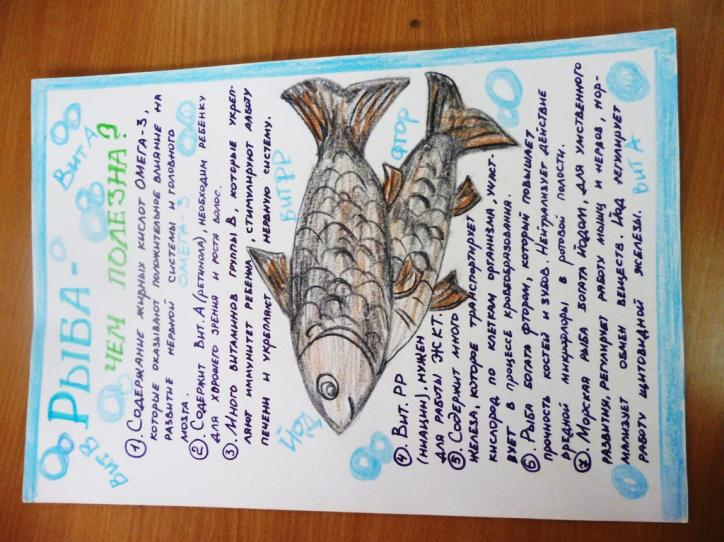 Рыба -
чем полезна?
Вит. А
Вит В
①. Содержание жирных кислот Омега-3,
которые оказывают положительное влияние на
развитие нервной системы и головного
мозга.
Омега-3
②. Содержит Вит. А (ретинола), необходим ребенку
для хорошего зрения и роста волос.
③. Много витаминов группы В, которые укреп-
ляют иммунитет ребенка, стимулируют работу
печени и укрепляют нервную систему.
Вит РР
Йод
Фтор
④. Вит. РР
(ниацин), нужен
для работы ЖКТ.
⑤. Содержит много
железа, которое транспортирует
кислород по клеткам организма, участ-
вует в процессе кровеобразования.
⑥. Рыба богата фтором, который повышает
прочность костей и зубов. Нейтрализует действие
вредной микрофлоры в ротовой полости.
⑦. Морская рыба богата йодом, для умственного
развития, регулирует работу мышц и нервов, нор-
мализует обмен веществ. Йод регулирует
работу щитовидной железы.
Вит А